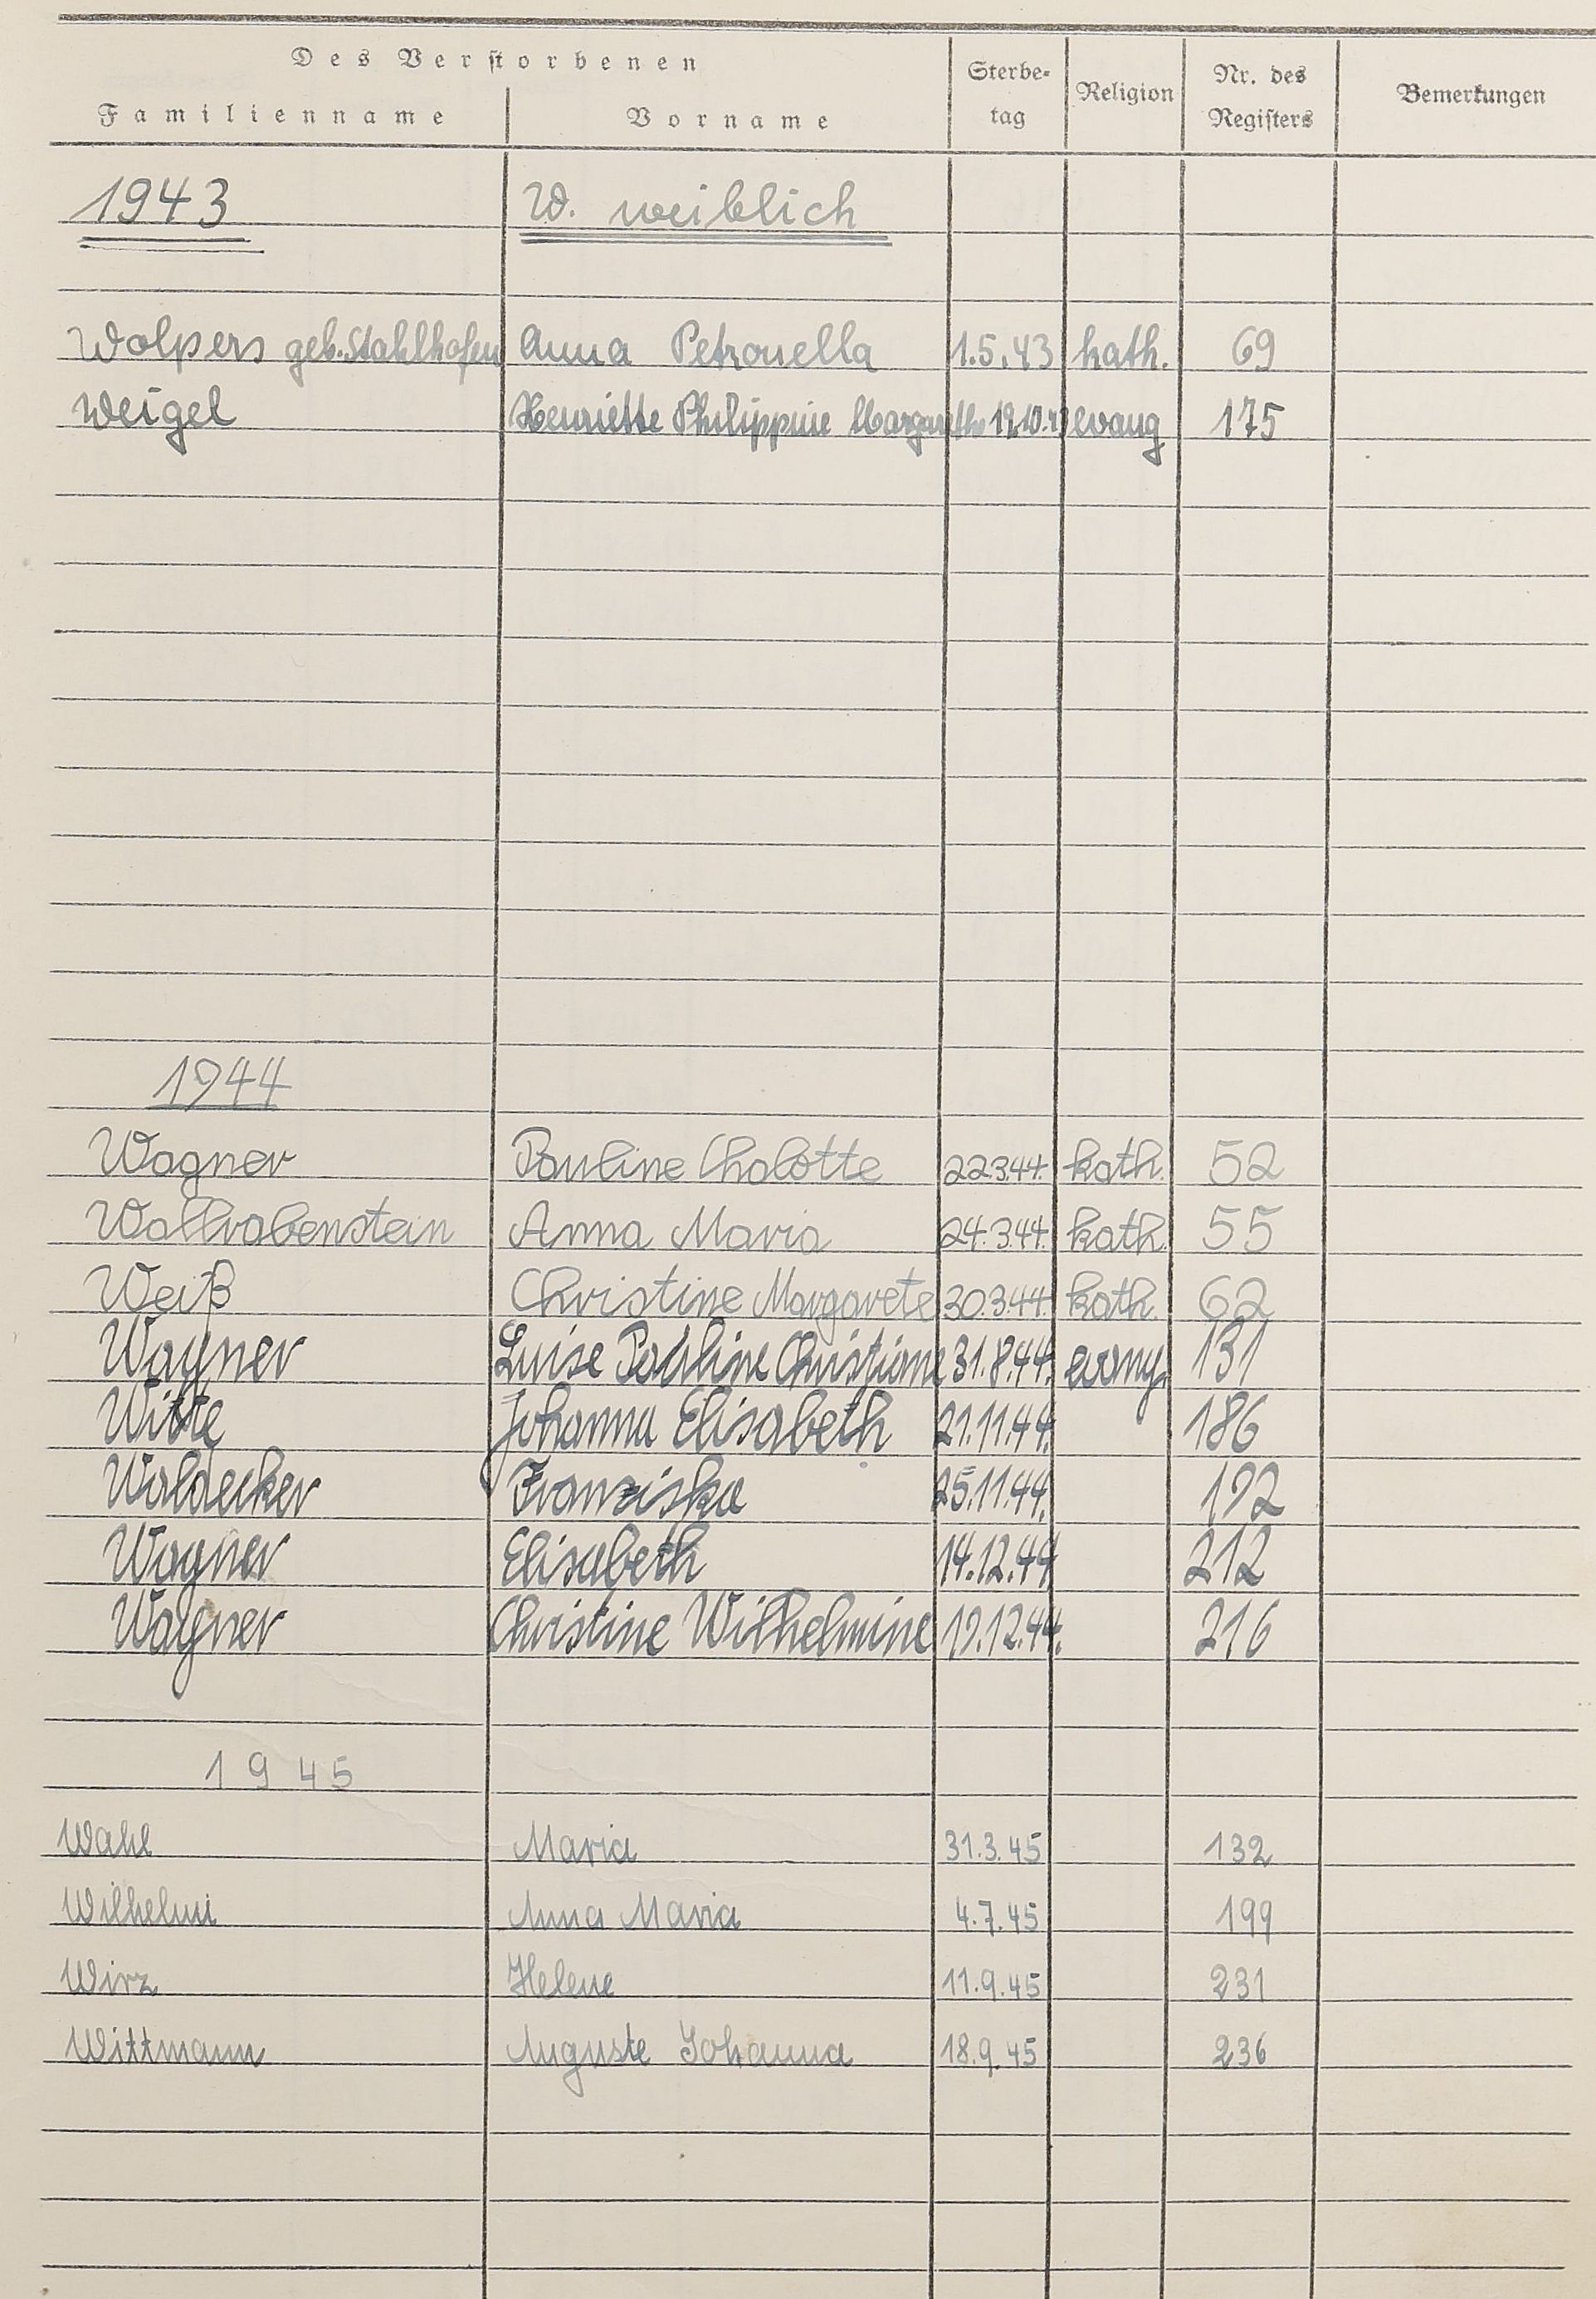 Des Verstorbenen
Familienname Vorname Sterbe-tag Religion Nr. des Registers Bemerkungen
1943 W. weiblich
Wolpers geb. Stahlhofen Anna Petronella 1.5.43 kath. 69
Weigel Henriette Philippine Margarethe 19.10.43 evang 175
1944
Wagner Pauline Cholotte 22.3.44. kath. 52
Wallrabenstein Anna Maria 24.3.44. kath. 55
Weiß Christine Margarete 30.3.44. kath. 62
Wagner Luise Pauline Christiane 31.8.44. evang. 131
Witte Johanna Elisabeth 21.11.44. 186
Waldecker Franziska 25.11.44. 192
Wagner Elisabeth 14.12.44 212
Wagner Christine Wilhelmine 19.12.44. 216
1945
Wahl Maria 31.3.45 132
Wilhelmi Anna Maria 4.7.45 199
Wirz Helene 11.9.45 231
Wittmann Auguste Johanna 18.9.45 236